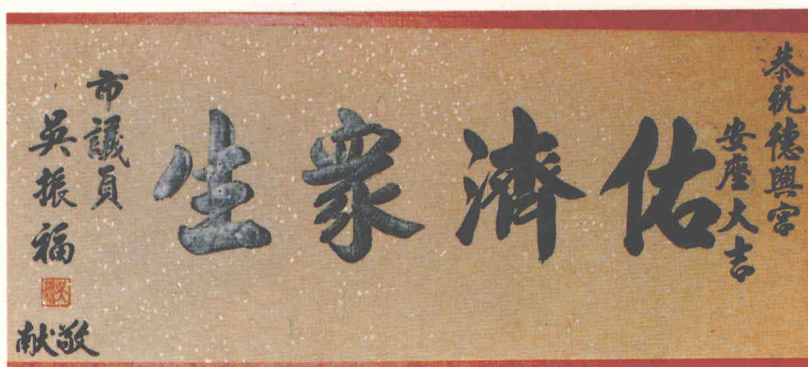 恭祝德興宮
安座大吉
佑濟眾生
市議員
吳振福
敬献